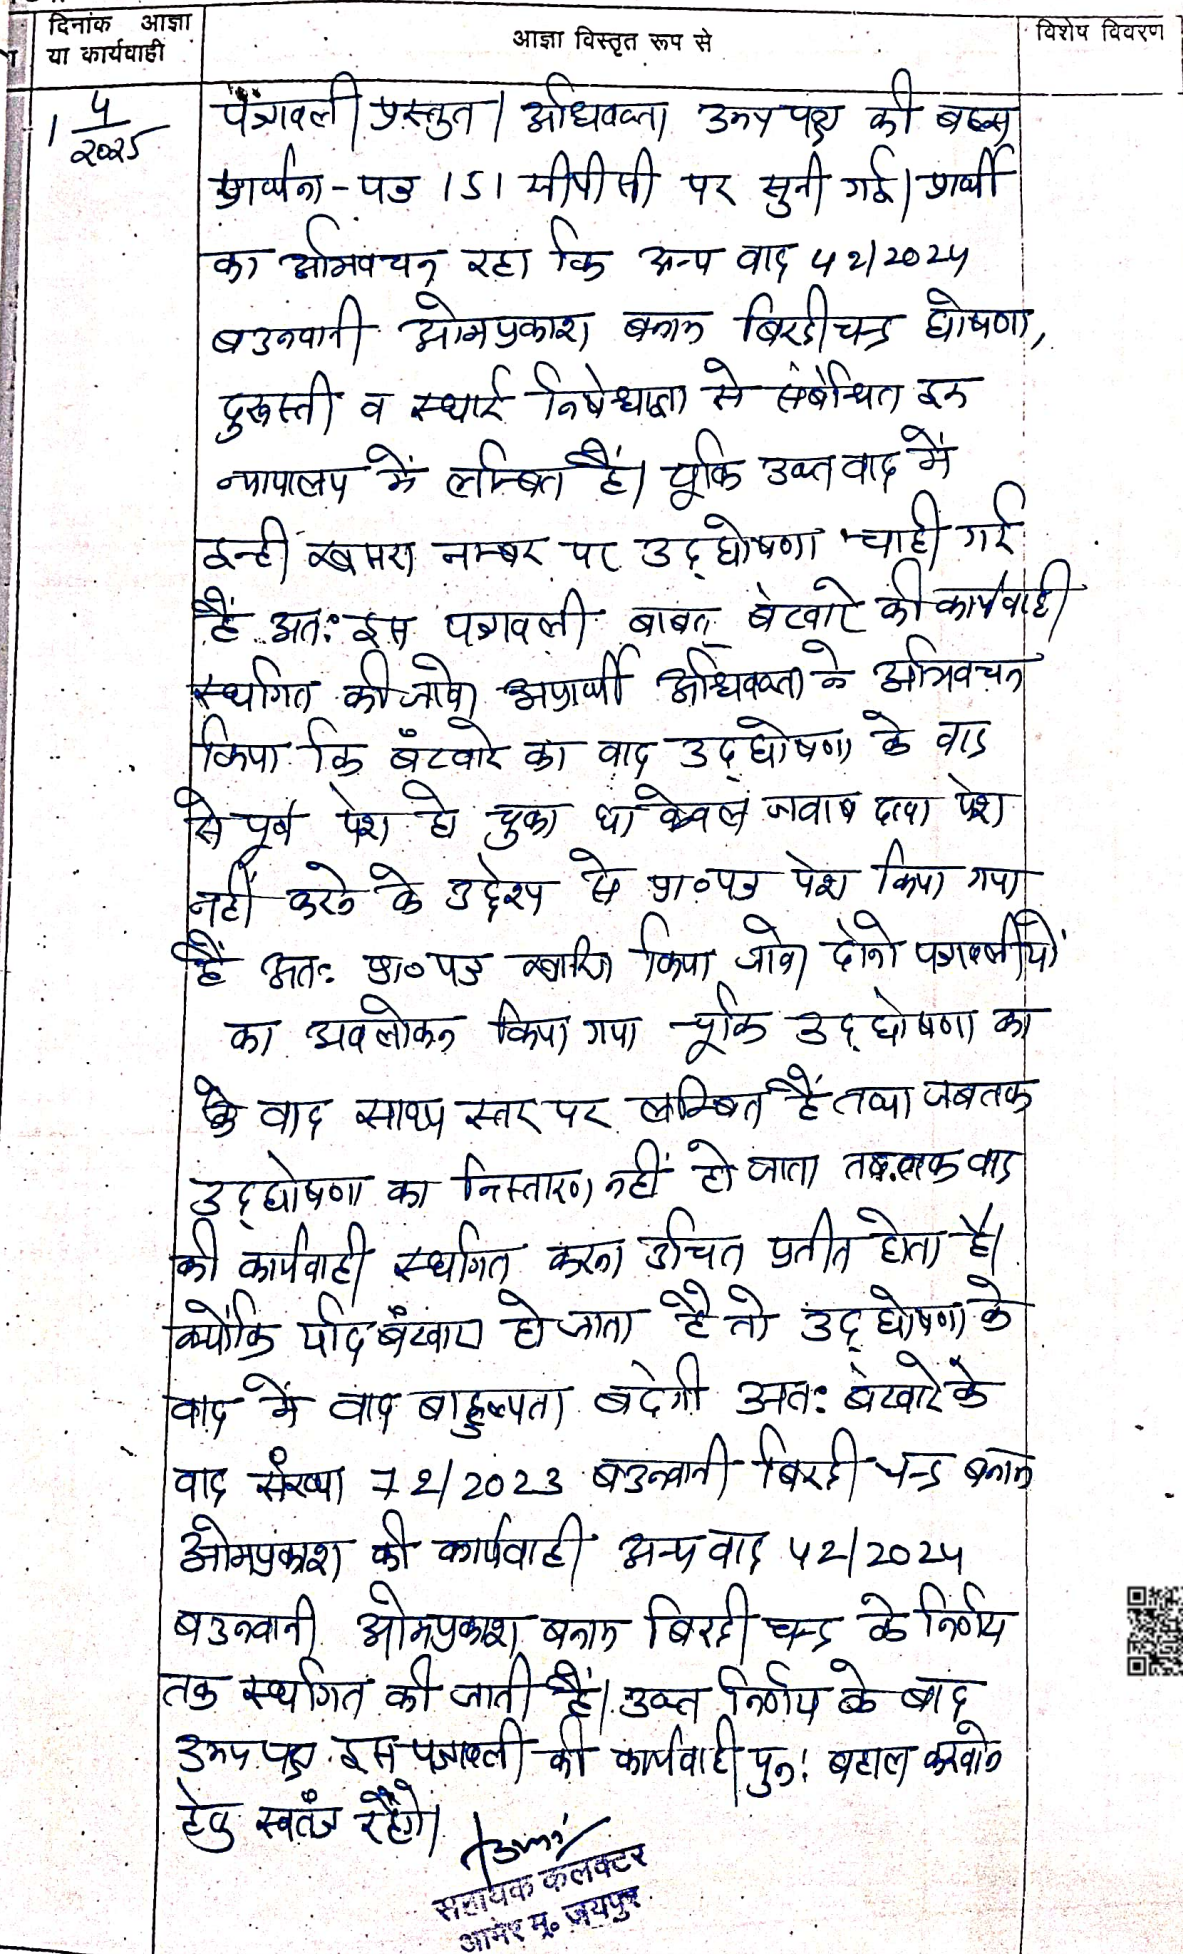 दिनांक आज्ञा
या कार्यवाही
आज्ञा विस्तृत रूप से
विशेष विवरण
1 4/2025
पत्रावली प्रस्तुत। अधिवक्ता उभय पक्ष की बहस
प्रार्थना-पत्र 151 सीपीसी पर सुनी गई। प्रार्थी
का अभिवचन रहा कि अन्य वाद 42/2024
बउनवानी ओमप्रकाश बनाम बिरदीचन्द घोषणा,
दुरूस्ती व स्थाई निषेधाज्ञा से संबंधित इस
न्यायालय में लम्बित है। चूकि उक्त वाद में
इन्ही खसरा नम्बर पर उद्घोषणा चाही गई
हैं अतः इस पत्रावली बाबत् बंटवारे की कार्यवाही
स्थगित की जावे। अप्रार्थी अधिवक्ता के अभिवचन
किया कि बंटवारे का वाद उद्घोषणा के वाद
से पूर्व पेश हो चुका था केवल जवाब दावा पेश
नहीं करने के उद्देश्य से प्रा०पत्र पेश किया गया
हैं अतः प्रा०पत्र खारिज किया जावे। दोनो पत्रावलीयों
का अवलोकन किया गया चूकि उद्घोषणा का
के वाद साक्ष्य स्तर पर लम्बित हैं तथा जबतक
उद्घोषणा का निस्तारण नहीं हो जाता तब तक वाद
की कार्यवाही स्थगित करना उचित प्रतीत होता है।
क्योंकि यदि बंटवारा हो जाता है तो उद्घोषणा के
वाद में वाद बाहुल्यता बढेगी अतः बंटवारे के
वाद संख्या 72/2023 बउनवानी बिरदी चन्द बनाम
ओमप्रकाश की कार्यवाही अन्य वाद 42/2024
बउनवानी ओमप्रकाश बनाम बिरदी चन्द के निर्णय
तक स्थगित की जाती हैं। उक्त निर्णय के बाद
उभय पक्ष इस पत्रावली की कार्यवाही पुनः बहाल करवाने
हेतु स्वतंत्र रहेंगे।
सहायक कलक्टर
आमेर मु० जयपुर